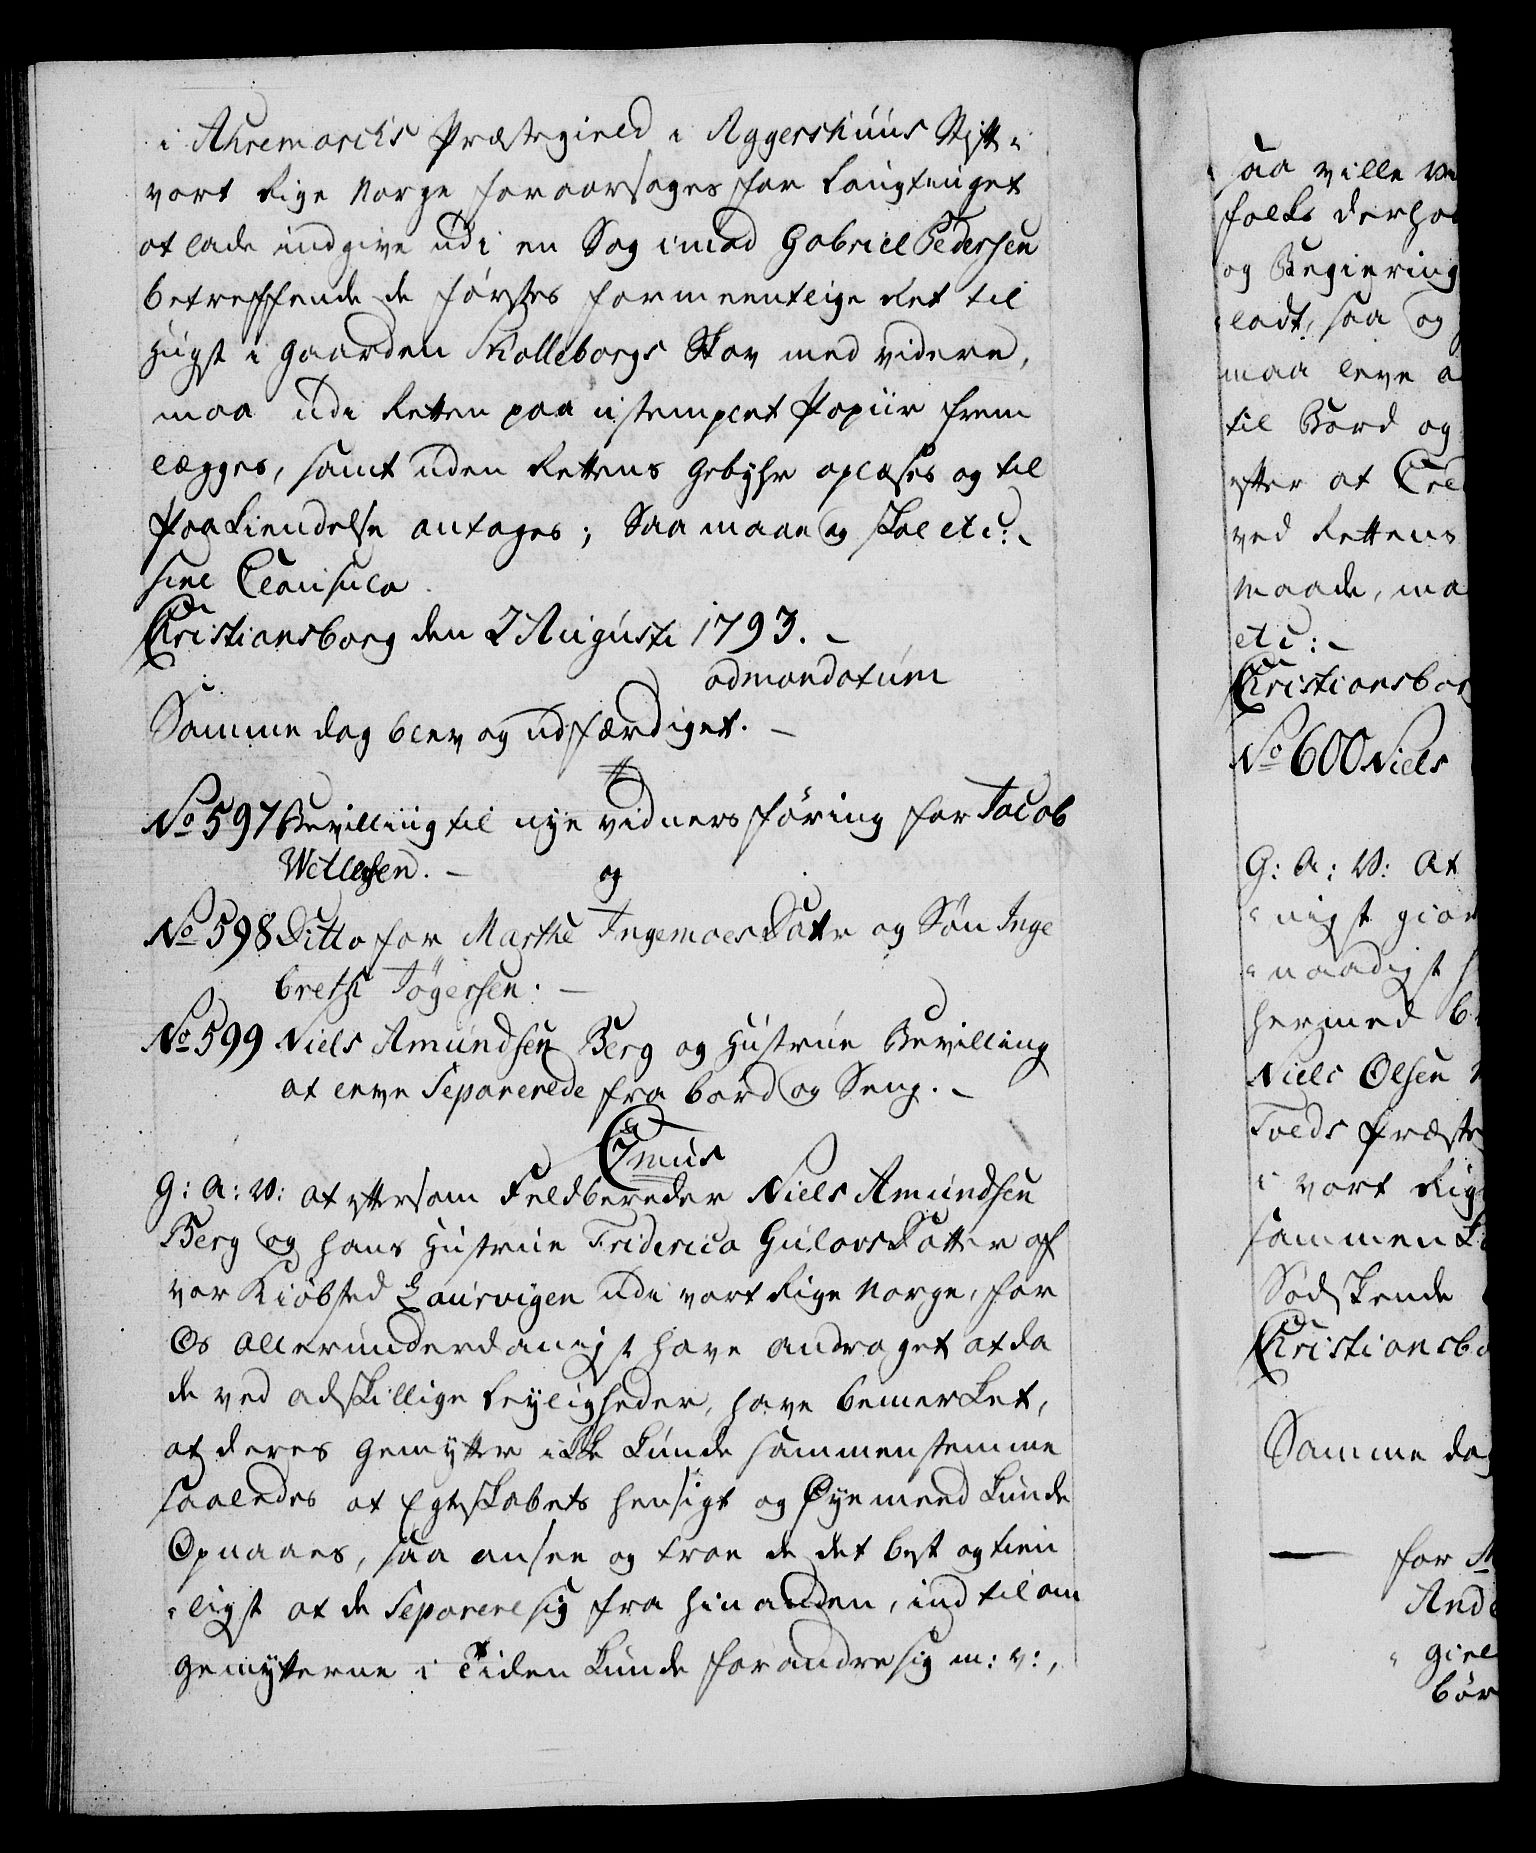 i Ahremarchs Præstegield i Aggershuus Stift i
vort Rige Norge foraarsages for Laugtinget
at lade indgive udi en Sag imod Gabriel Pedersen
betreffende de førstes formeentlige Ret til
Hugst i Gaarden Skolleborgs Skov med videre,
maa udi Retten paa ustemplet Papiir frem
lægges, samt uden Rettens Gebyhr oplæses og til
Paakiendelse antages; Saa maae og skal etc:
sine Clausula.
Christiansborg den 2 Augusti 1793.
admandatum
Samme dag blev og udfærdiget.
No 597 Bevilling til nye vidners føring for Jacob
Wetlesen. og
No 598 Ditto for Marthe IngemoesDatter og Søn Inge
breth Tøgersen.
No 599 Niels Amundsen Berg og Hustrue Bevilling
at leve Separerede fra bord og Seng.
C7mus
G: A: V: at eftersom Feldbereder Niels Amundsen
Berg og hans Hustrue Friderica GulovsDatter af
vor Kiøbsted Laurvigen udi vort Rige Norge, for
Os allerunderdanigst have andraget at da
de ved adskillige Leyligheder, have bemerket,
at deres Gemytter ikke kunde sammenstemme
saaledes at Egteskabets hensigt og Øyemeed kunde
Opnaaes, saa ansee og troe de det best og tien
ligst at de Separere sig fra hinanden, indtil om
Gemytterne i Tiden kunde forandre sig m: v:,
saa ville
folks
og Regiering
ladt, saa og
maa leve
til Bord og
efter at
ved Rettens
Maade,
etc:
Christiansborg
No 600 Niels
G: A: V: At
nigst
naadigst
hermed
Niels Olsen
Tveds Præste
i vort Rige
sammen
Sødskende
Christiansbo
Samme dag
for
And
giel
bør